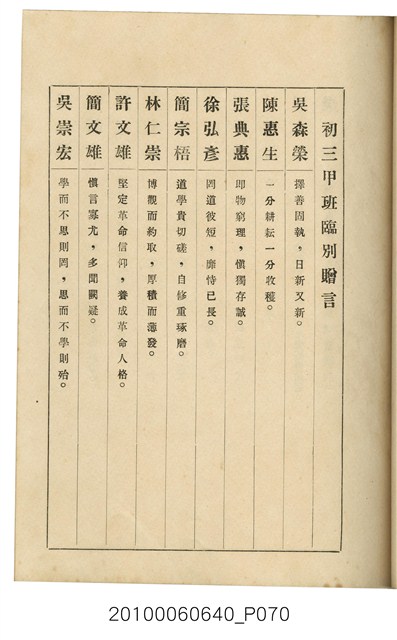 初三甲班臨別贈言
吳森榮 擇善固執，日新又新。
陳惠生 一分耕耘一分收穫。
張典惠 即物窮理，愼獨存誠。
徐弘彥 罔道彼短，靡恃己長。
簡宗梧 道學貴切磋，自修重琢磨。
林仁崇 博觀而約取，厚積而薄發。
許文雄 堅定革命信仰，養成革命人格。
簡文雄 愼言寡尤，多聞闕疑。
吳崇宏 學而不思則罔，思而不學則殆。
20100060640_P070